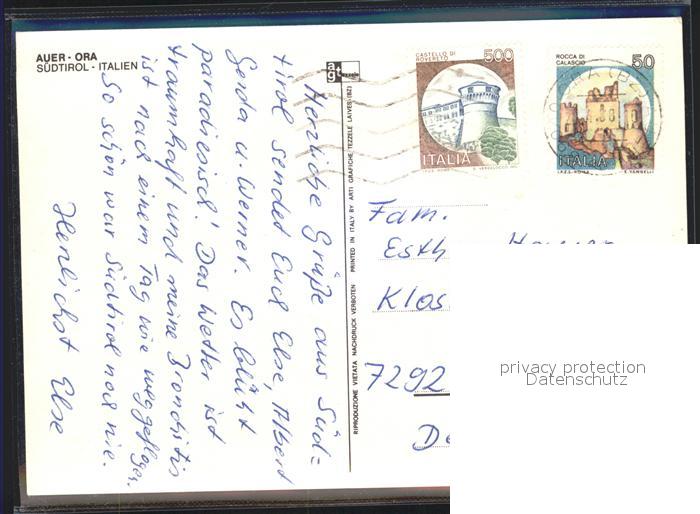 AUER - ORA
SÜDTIROL - ITALIEN
agt tezzele
CASTELLO DI
ROVERETO
500
ITALIA
ROCCA DI
CALASCIO
50
ITALIA
I.P.Z.S. ROMA
E. VANGELLI
Herzliche Grüße aus Süd=
tirol sendet Euch Else, Albert
Gerda u. Werner. Es blüht
paradiesisch! Das Wetter ist
traumhaft und meine Bronchitis
ist nach einem Tag wie weggeflogen.
So schön war Südtirol noch nie.
Herzlichst Else
RIPRODUZIONE VIETATA NACHDRUCK VERBOTEN PRINTED IN ITALY BY ARTI GRAFICHE TEZZELE LAIVES (BZ)
Fam.
Esth
Klos
7292
De
privacy protection
Datenschutz